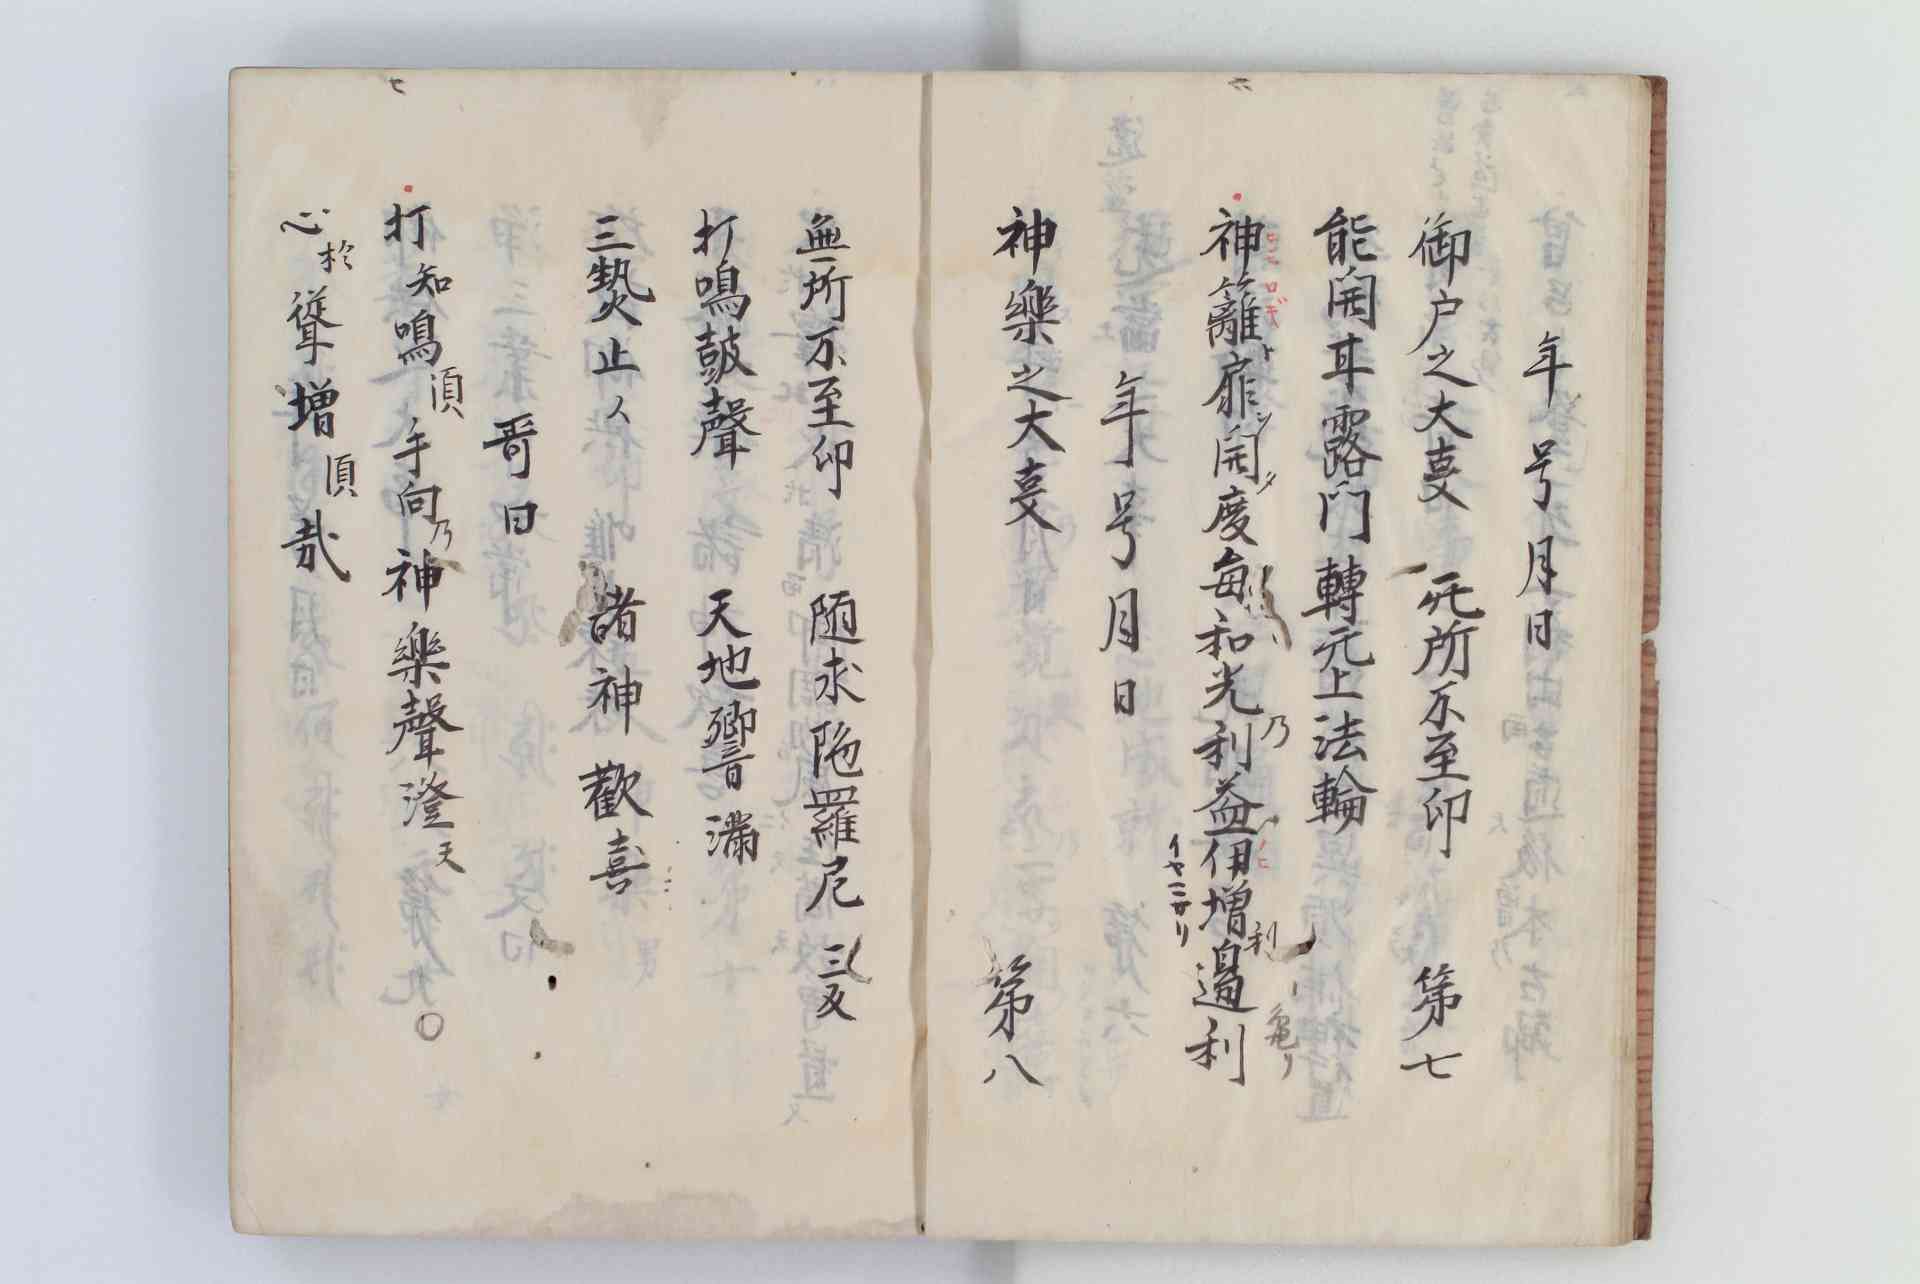 年号月日
御戸之大事　无所不至印　第七
能開耳露門轉元上法輪
神籬扉開度毎和光乃利益伊増利邉利
イヤニサリ
年号月日
神樂之大事　第八
無所不至印　随求陁羅尼三反
打鳴皷聲　天地響音満
三㷫止人　諸神歡喜
哥曰
打知鳴須手向乃神樂聲澄天
心於聳増須哉